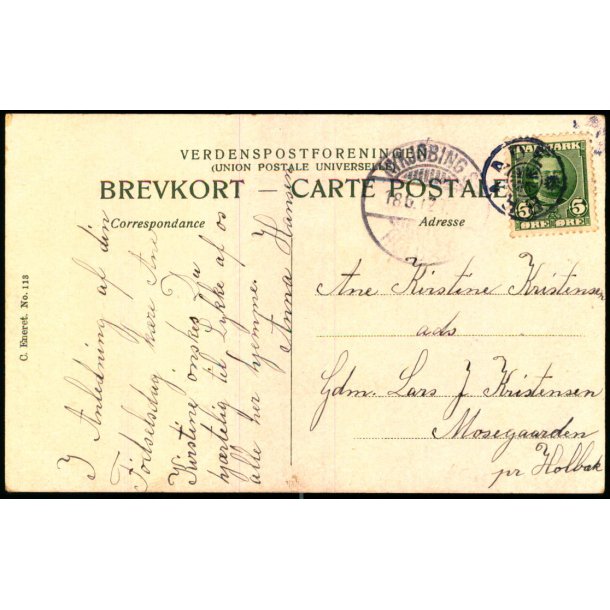 VERDENSPOSTFORENINGEN
(UNION POSTALE UNIVERSELLE)
BREVKORT — CARTE POSTALE
Correspondance
Adresse
DANMARK
5 5
ØRE ØRE
18.6.13
C. Eneret. No. 113
I Anledning af din
Födselsdag kære Ane
Kirstine önskes Du
hjærtelig til Lykke af os
alle her hjemme.
Anna Hansen
Ane Kirstine Kristensen
ads
Gdm. Lars J Kristensen
Mosegaarden
pr Holbæk